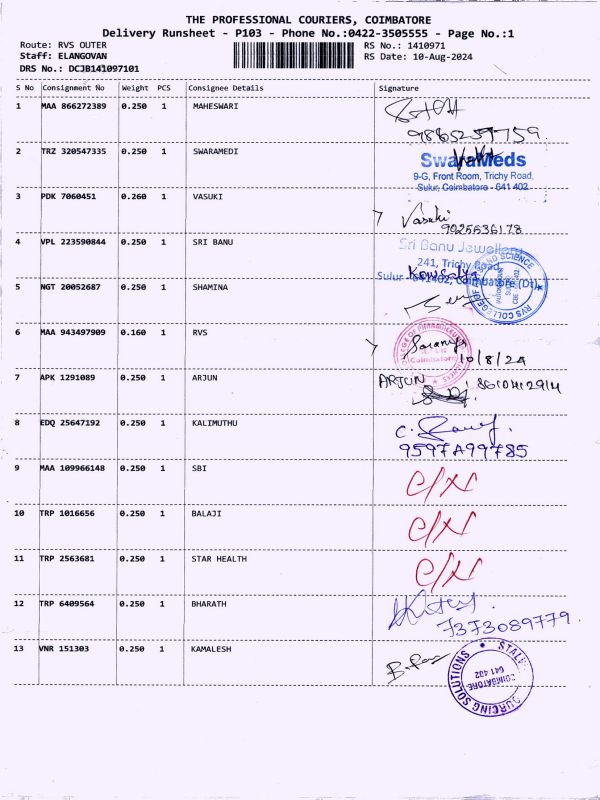 THE PROFESSIONAL COURIERS, COIMBATORE
Delivery Runsheet - P103 - Phone No.:0422-3505555 - Page No.:1
Route: RVS OUTER RS No.: 1410971
Staff: ELANGOVAN RS Date: 10-Aug-2024
DRS No.: DCJB141097101
S No Consignment No Weight PCS Consignee Details Signature
1 MAA 866272389 0.250 1 MAHESWARI
9865257759.
2 TRZ 320547335 0.250 1 SWARAMEDI
SwaraMeds
9-G, Front Room, Trichy Road,
Sulur, Coimbatore - 641 402
3 PDK 7060451 0.260 1 VASUKI
Vasuki
9925536178
4 VPL 223590844 0.250 1 SRI BANU
Sri Banu Jewellery
241, Trichy Road,
Kowsalya
Sulur - 641402, Coimbatore (Dt)
5 NGT 20052687 0.250 1 SHAMINA
RVS COLLEGE OF ARTS AND SCIENCE
6 MAA 943497909 0.160 1 RVS
Saranya
Coimbatore
10/8/24
7 APK 1291089 0.250 1 ARJUN
ARJUN
8610412914
8 EDQ 25647192 0.250 1 KALIMUTHU
9597A99785
9 MAA 109966148 0.250 1 SBI
C/N
10 TRP 1016656 0.250 1 BALAJI
C/N
11 TRP 2563681 0.250 1 STAR HEALTH
C/N
12 TRP 6409564 0.250 1 BHARATH
7373089779.
13 VNR 151303 0.250 1 KAMALESH
COIMBATORE
641 402